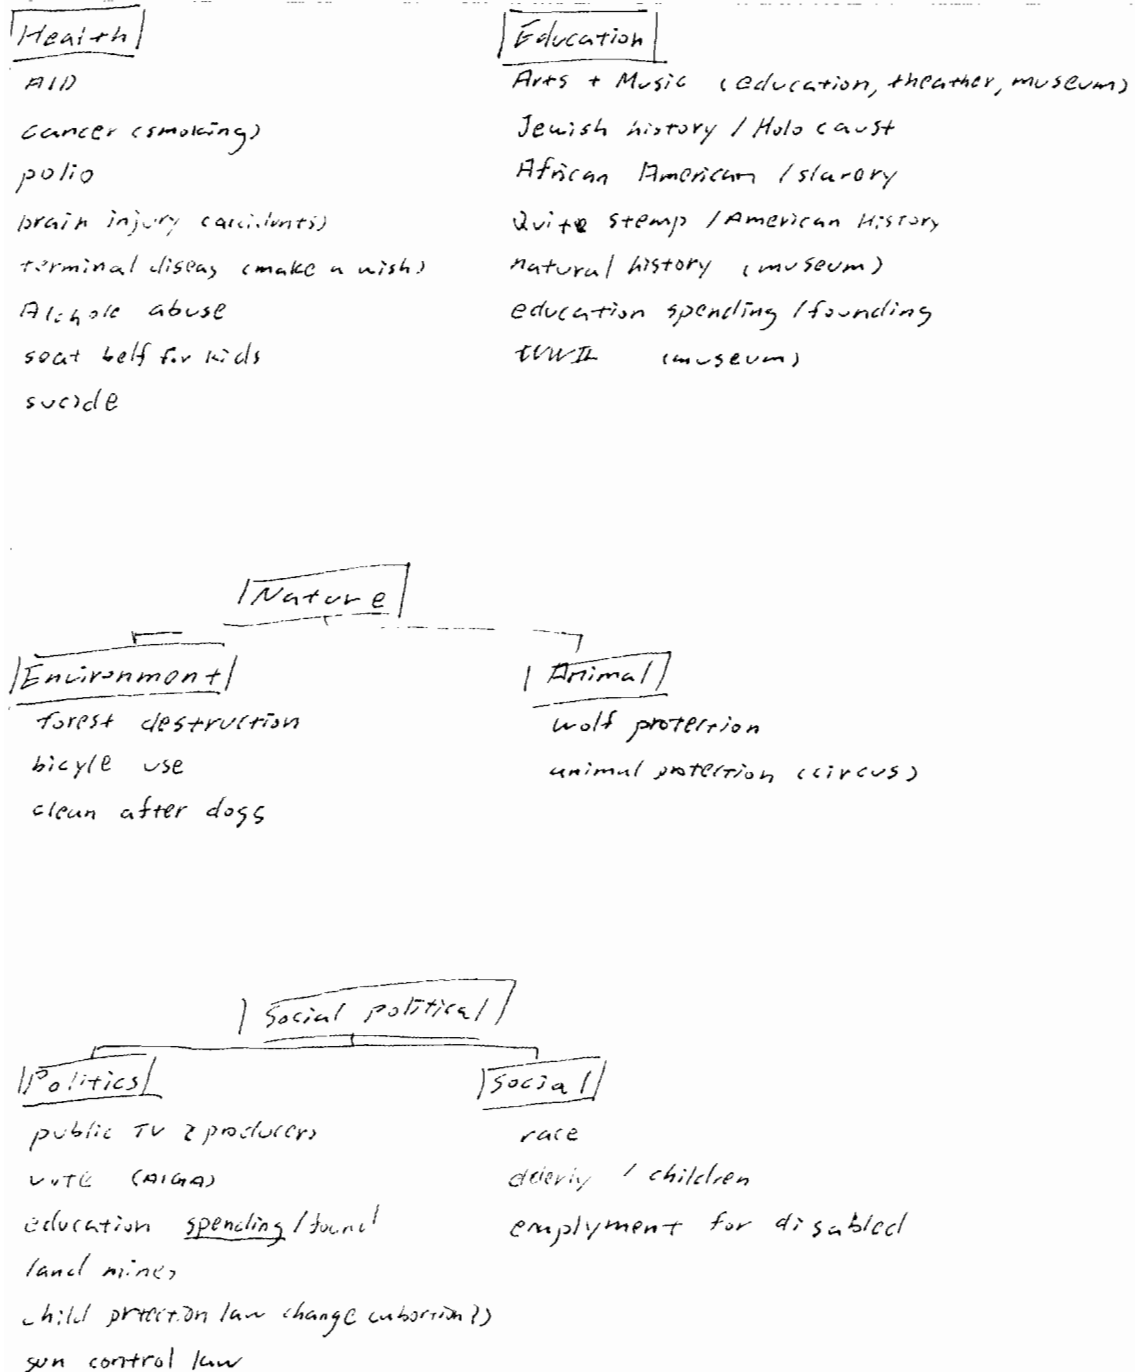 Health
AID
cancer (smoking)
polio
brain injury (accidents)
terminal diseas (make a wish)
Alchole abuse
seat belf for kids
sucide
Education
Arts + Music (education, theather, museum)
Jewish history / Holocaust
African American / slavery
Quite stemp / American History
natural history (museum)
education spending / founding
WWII (museum)
Nature
Environment
forest destruction
bicyle use
clean after dogs
Animal
wolf protection
animal protection (circus)
Social political
Politics
public TV producers
vote (AIGA)
education spending / found
land mines
child prtection law change (abortion?)
gun control law
Social
race
elderly / children
emplyment for disabled